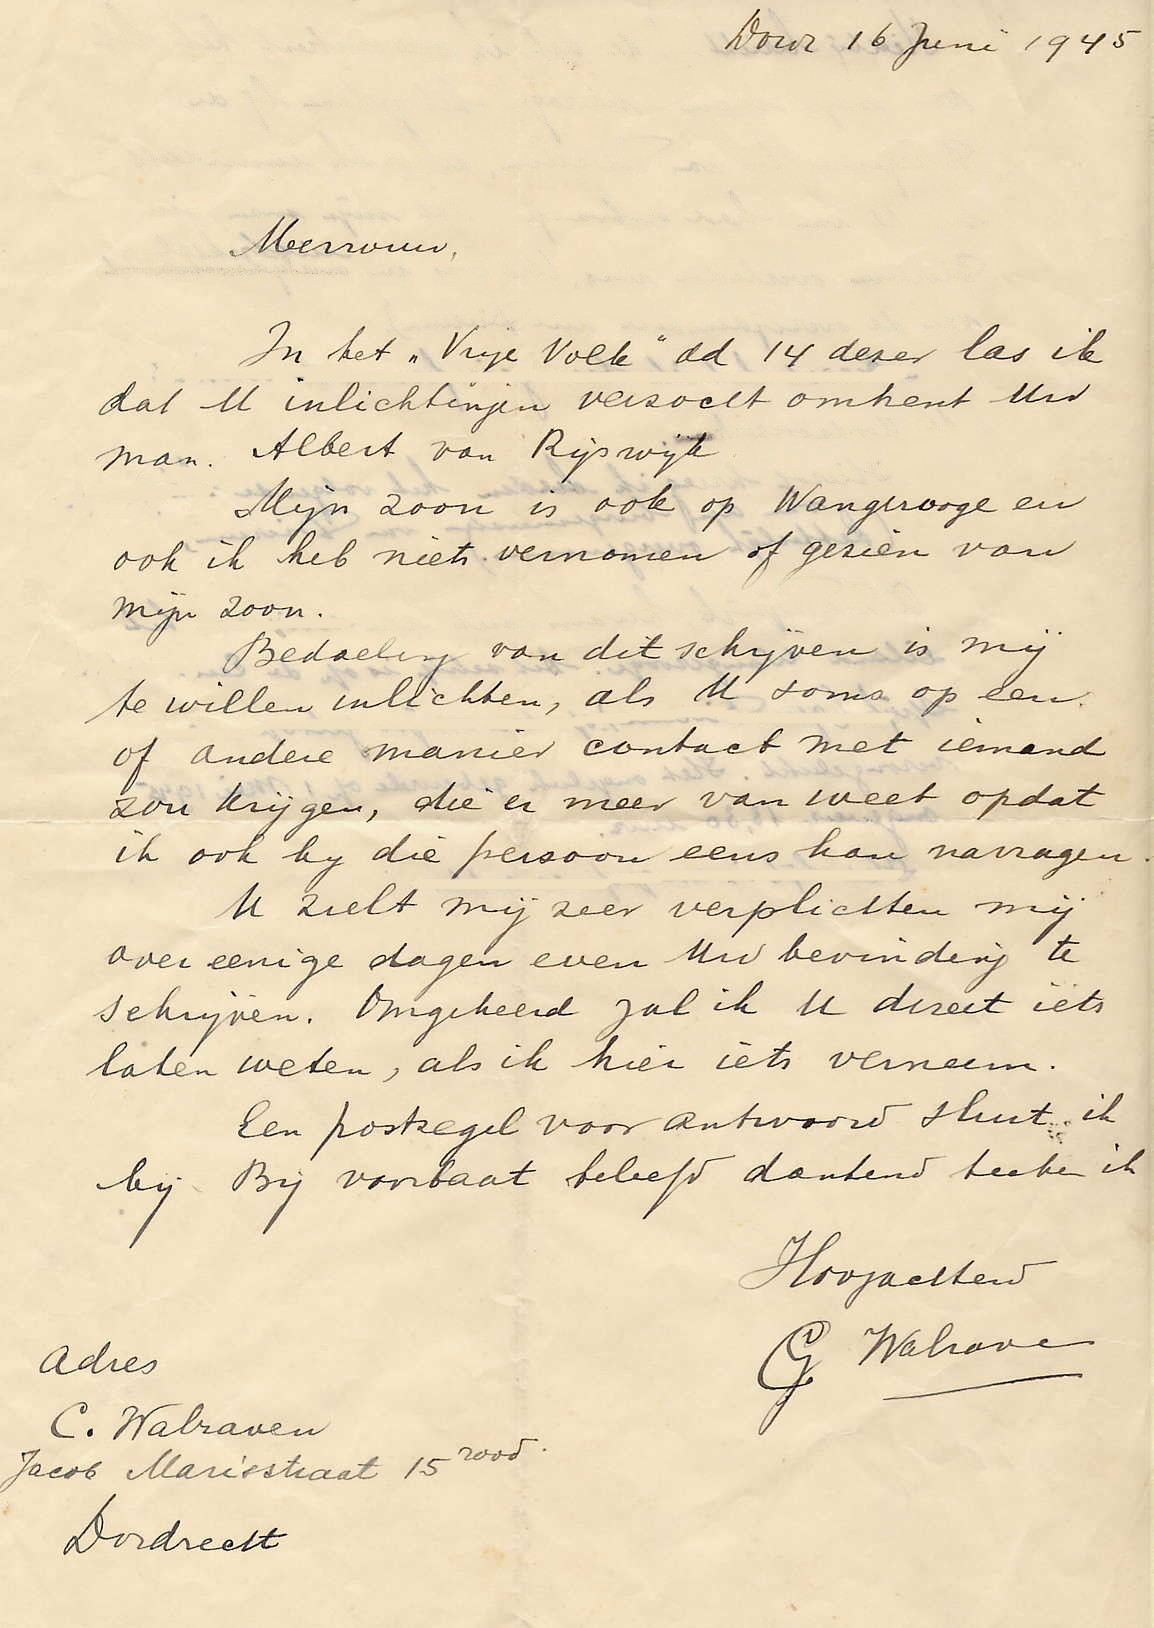 Dord 16 Juni 1945
Mevrouw,
In het „Vrije Volk" dd 14 dezer las ik
dat U inlichtingen verzocht omtrent Uw
man. Albert van Rijswijk
Mijn zoon is ook op Wangerooge en
ook ik heb niets vernomen of gezien van
mijn zoon.
Bedoeling van dit schrijven is mij
te willen inlichten, als U soms op een
of andere manier contact met iemand
zou krijgen, die er meer van weet opdat
ik ook by die persoon eens kan navragen.
U zielt mij zeer verplichten mij
over eenige dagen even Uw bevinding te
schrijven. Omgekeerd zal ik U direct iets
laten weten, als ik hier iets verneem.
Een postzegel voor antwoord sluit ik
bij. Bij voorbaat beleefd dankend teeken ik
Hoogachtend
G Walraven
Adres
C. Walraven
Jacob Marisstraat 15 rood.
Dordrecht